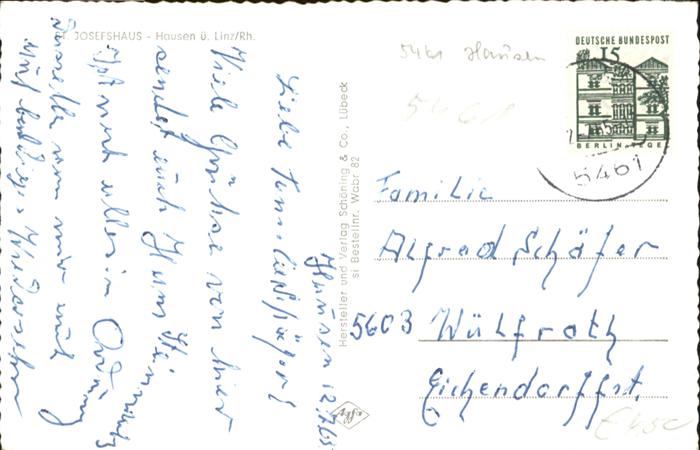 ST. JOSEFSHAUS - Hausen ü. Linz/Rh.
Hausen 12.7.65
Liebe Familie Schäfer!
Viele Grüße von hier
sendet euch Hans
Ist noch alles in Ordnung
Dasselbe von mir auch
Auf baldiges Wiedersehn
Hersteller und Verlag Schöning & Co., Lübeck
si Bestellnr. Wabr 82
5461 Hausen
5461
DEUTSCHE BUNDESPOST
15
BERLIN-TEGEL
5461
Familie
Alfred Schäfer
5603 Wülfrath
Eichendorffst.